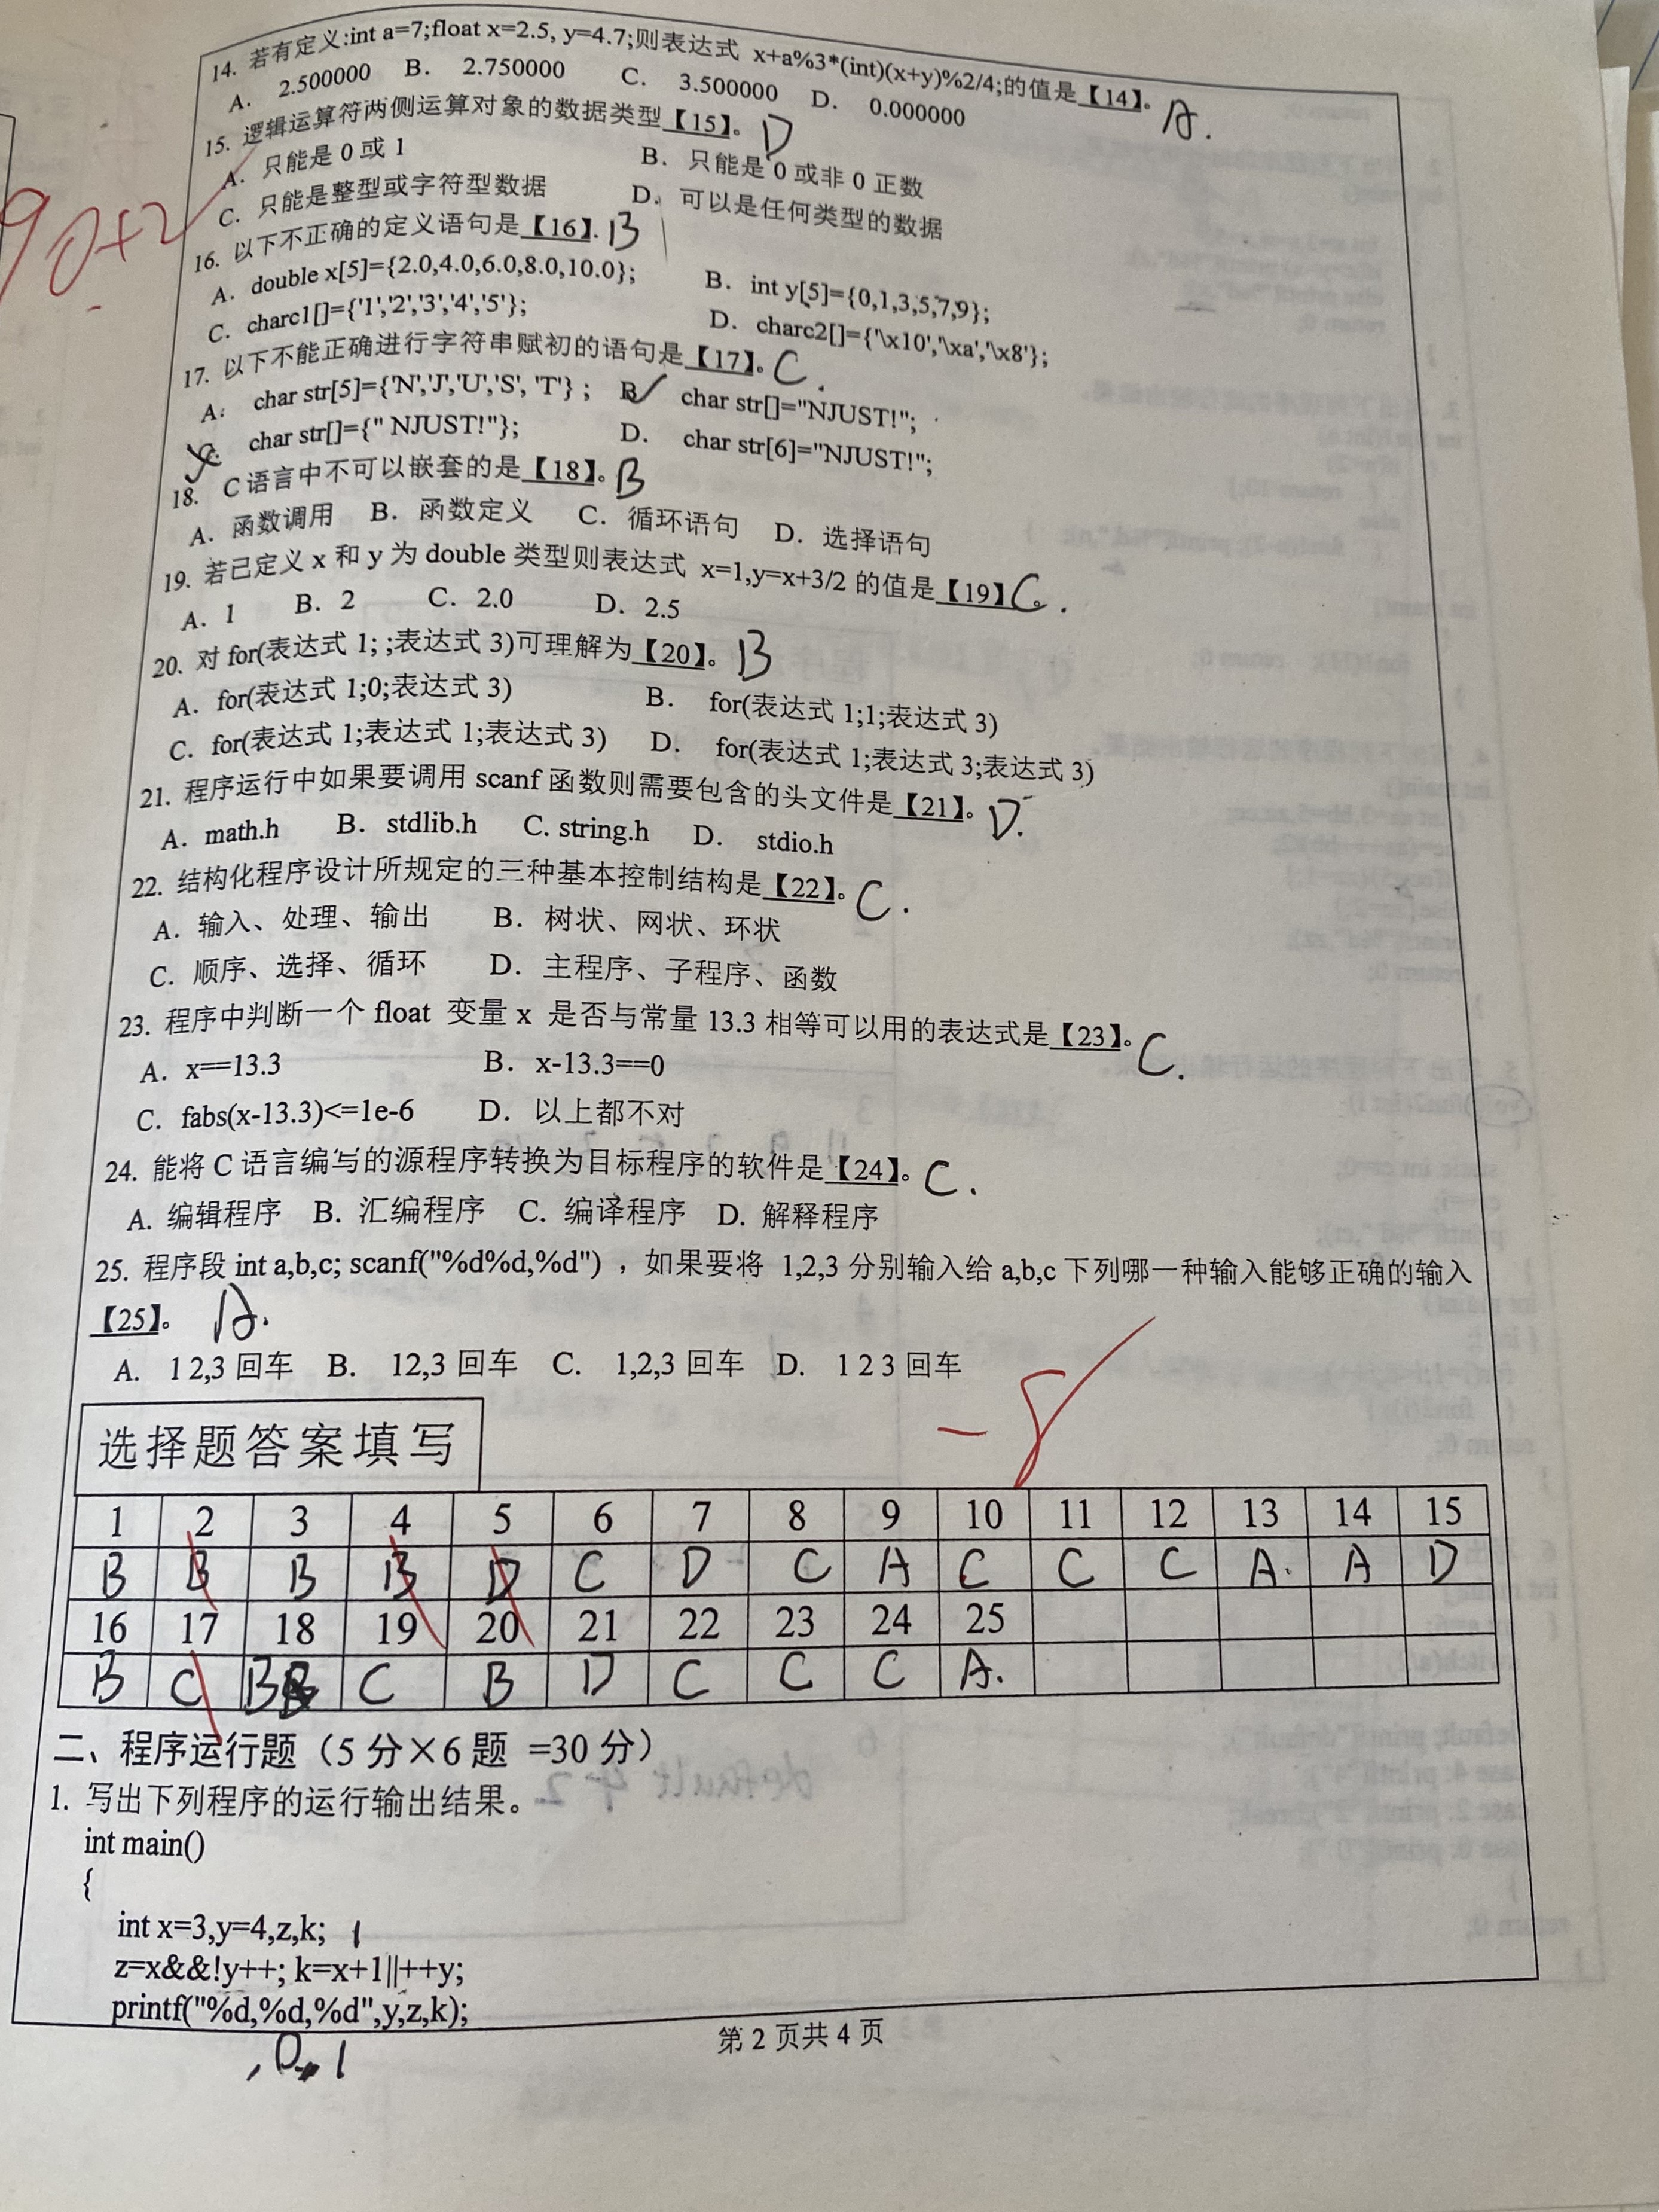 14. 若有定义:int a=7;float x=2.5, y=4.7;则表达式 x+a%3*(int)(x+y)%2/4;的值是【14】。 A.
A. 2.500000 B. 2.750000 C. 3.500000 D. 0.000000
15. 逻辑运算符两侧运算对象的数据类型【15】。 D
A. 只能是 0 或 1 B. 只能是 0 或非 0 正数
C. 只能是整型或字符型数据 D. 可以是任何类型的数据
90+2
16. 以下不正确的定义语句是【16】. B
A. double x[5]={2.0,4.0,6.0,8.0,10.0}; B. int y[5]={0,1,3,5,7,9};
C. charc1[]={'1','2','3','4','5'}; D. charc2[]={'\x10','\xa','\x8'};
17. 以下不能正确进行字符串赋初的语句是【17】。 C.
A. char str[5]={'N','J','U','S', 'T'} ; B. char str[]="NJUST!";
C. char str[]={" NJUST!"}; D. char str[6]="NJUST!";
18. C 语言中不可以嵌套的是【18】。 B
A. 函数调用 B. 函数定义 C. 循环语句 D. 选择语句
19. 若已定义 x 和 y 为 double 类型则表达式 x=1,y=x+3/2 的值是【19】。 C.
A. 1 B. 2 C. 2.0 D. 2.5
20. 对 for(表达式 1; ;表达式 3)可理解为【20】。 B
A. for(表达式 1;0;表达式 3) B. for(表达式 1;1;表达式 3)
C. for(表达式 1;表达式 1;表达式 3) D. for(表达式 1;表达式 3;表达式 3)
21. 程序运行中如果要调用 scanf 函数则需要包含的头文件是【21】。 D.
A. math.h B. stdlib.h C. string.h D. stdio.h
22. 结构化程序设计所规定的三种基本控制结构是【22】。 C.
A. 输入、处理、输出 B. 树状、网状、环状
C. 顺序、选择、循环 D. 主程序、子程序、函数
23. 程序中判断一个 float 变量 x 是否与常量 13.3 相等可以用的表达式是【23】。 C.
A. x==13.3 B. x-13.3==0
C. fabs(x-13.3)<=1e-6 D. 以上都不对
24. 能将 C 语言编写的源程序转换为目标程序的软件是【24】。 C.
A. 编辑程序 B. 汇编程序 C. 编译程序 D. 解释程序
25. 程序段 int a,b,c; scanf("%d%d,%d") ，如果要将 1,2,3 分别输入给 a,b,c 下列哪一种输入能够正确的输入
【25】。 A.
A. 1 2,3 回车 B. 12,3 回车 C. 1,2,3 回车 D. 1 2 3 回车
-8
选择题答案填写
1 2 3 4 5 6 7 8 9 10 11 12 13 14 15
B B B B D C D C A C C C A. A D
16 17 18 19 20 21 22 23 24 25
B C B C B D C C C A.
二、程序运行题（5 分×6 题 =30 分）
1. 写出下列程序的运行输出结果。
int main()
{
int x=3,y=4,z,k; 1
z=x&&!y++; k=x+1||++y;
printf("%d,%d,%d",y,z,k);
, 0, 1
第 2 页共 4 页